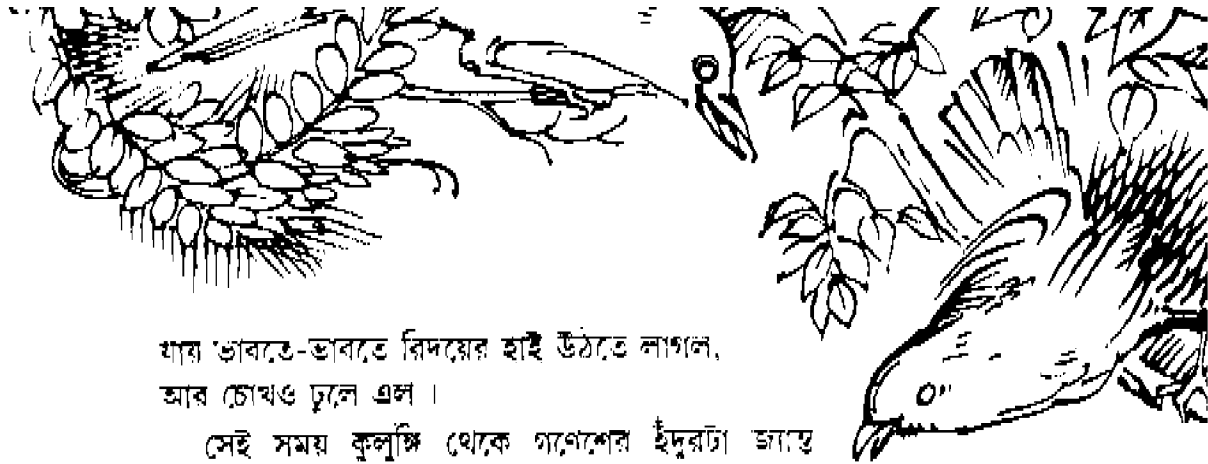 যায় ভাবতে-ভাবতে রিদয়ের হাই উঠতে লাগল,
আর চোখও ঢুলে এল ।
সেই সময় কুলুঙ্গি থেকে গণেশের ইঁদুরটা জ্যান্ত